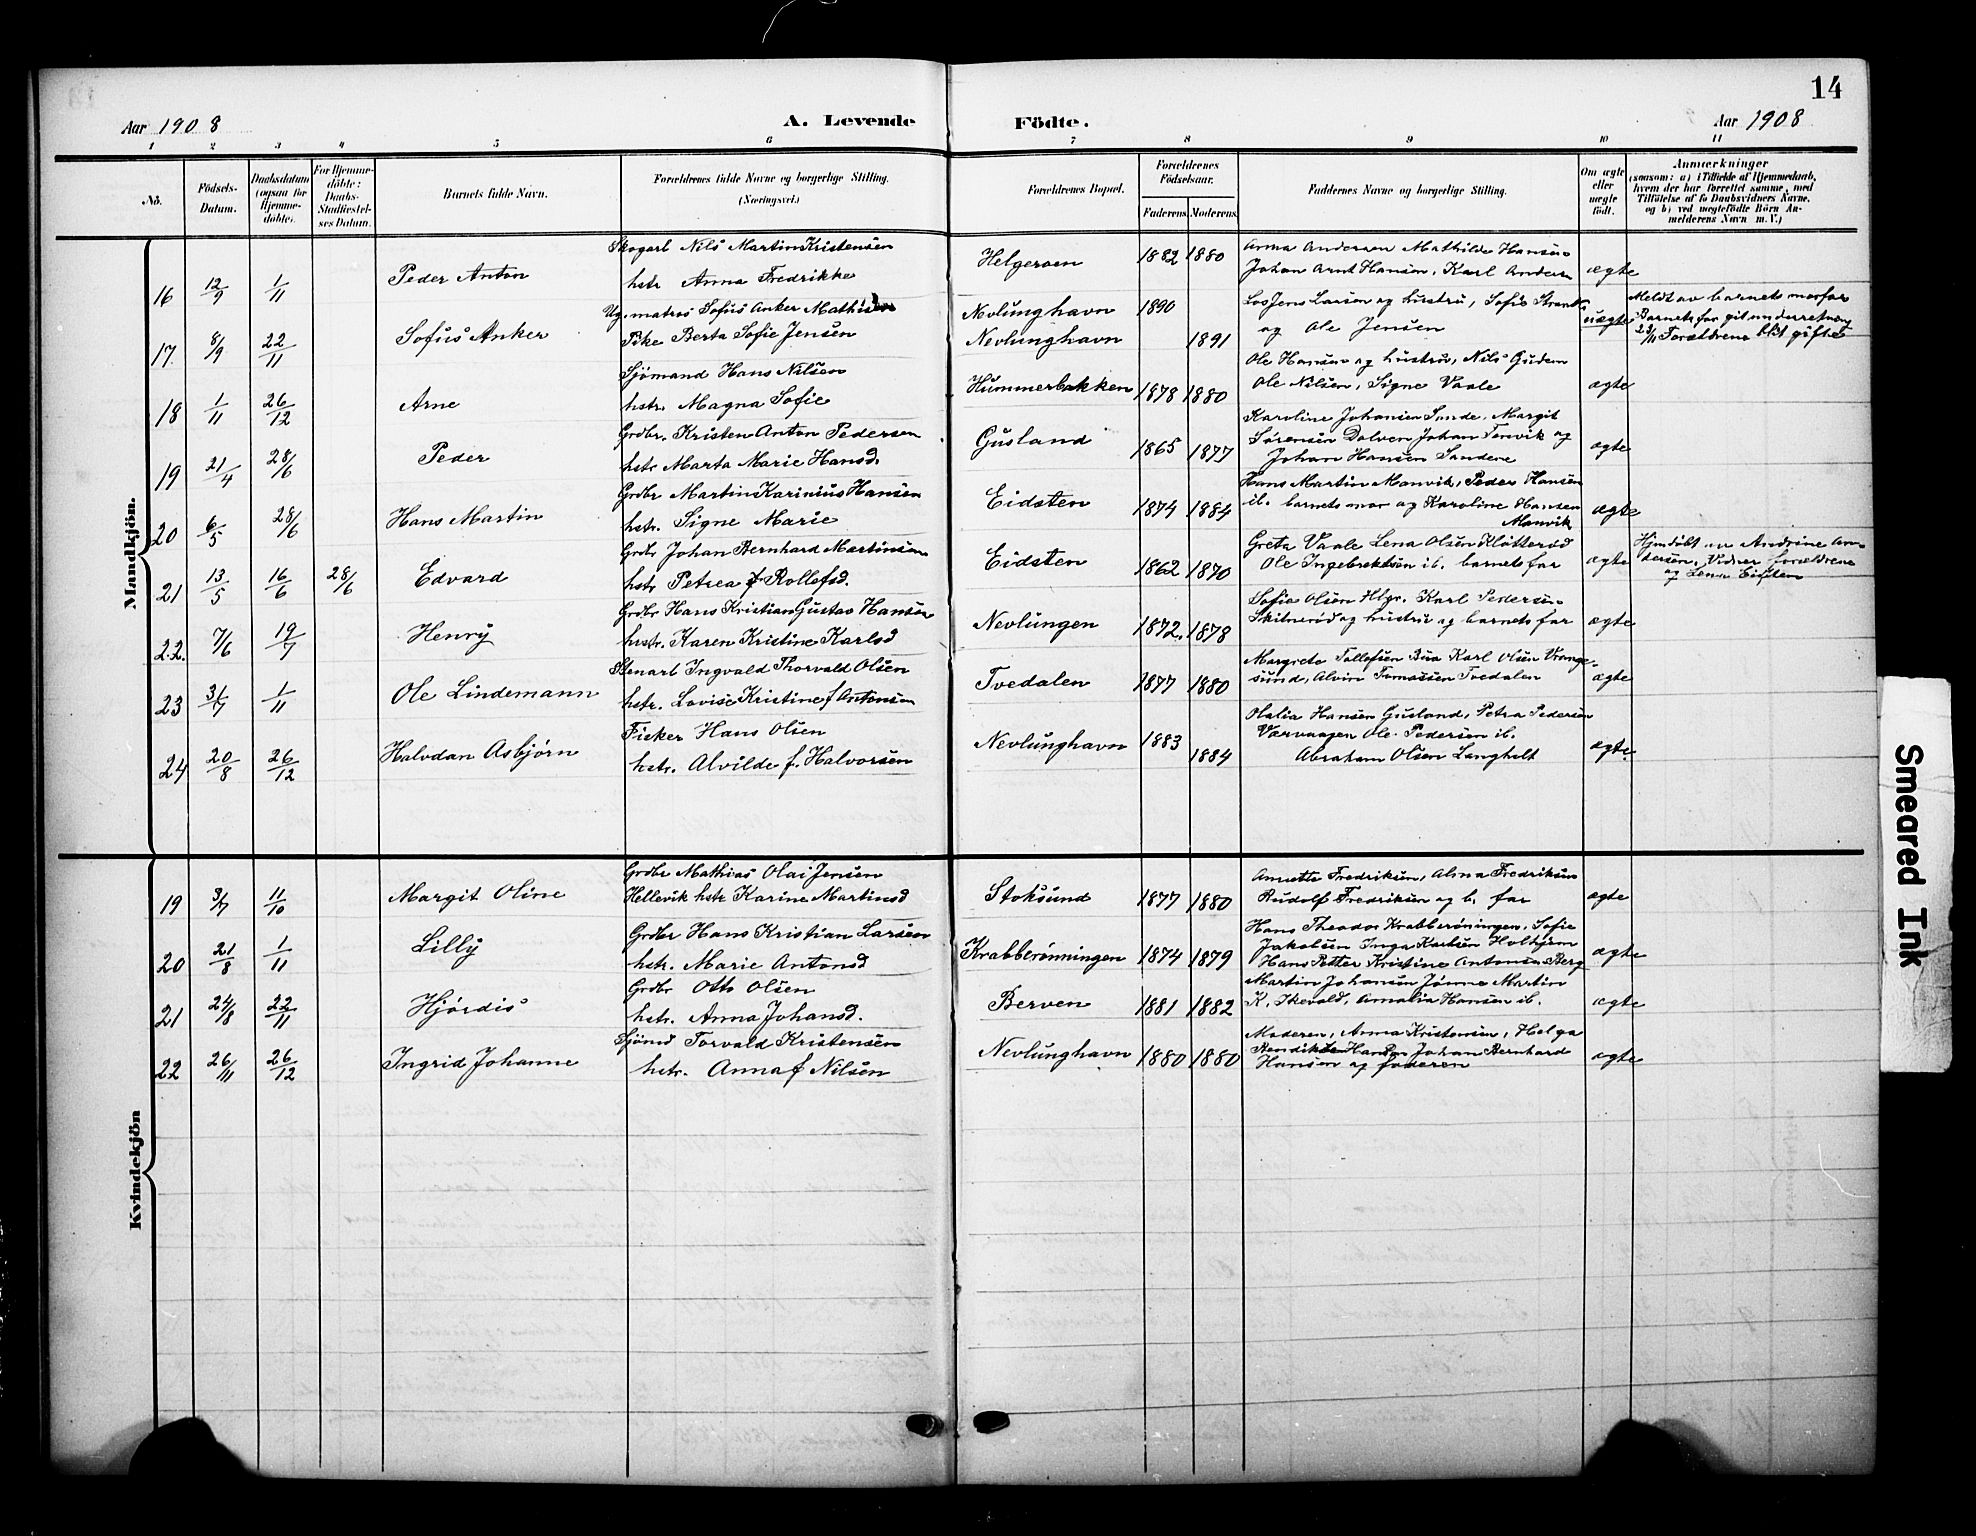 14
Aar 1908
A. Levende
Födte.
Aar 1908
1 2 3 4 5 6 7 8 9 10 11
No.
Födsels-Datum.
Daabsdatum (ogsaa for Hjemmedöbte).
For Hjemmedöbte: Daabs-Stadfæstelses Datum.
Barnets fulde Navn.
Forældrenes fulde Navne og borgerlige Stilling.
(Næringsvei.)
Forældrenes Bopæl.
Forældrenes Födselsaar.
Faderens. Moderens.
Faddernes Navne og borgerlige Stilling.
Om ægte eller uægte födt.
Anmærkninger
(saasom: a) i Tilfælde af Hjemmedaab, hvem der har forrettet samme, med Tilföielse af to Daabsvidners Navne, og b) ved uægtefödte Börn Anmelderens Navn m. V.)
Mandkjön.
16 12/9 1/11 Peder Anton
Skogarb Nils Martin Kristensen
hstr Anna Fredrikke
Helgeroen 1882 1880
Anna Andersen Mathilde Hansen
Johan Arnt Hansen, Karl Andersen
ægte
17. 8/9 22/11 Sofus Anker
Ug. matros Sofus Anker Mathisen
Pike Berta Sofie Jensen
Nevlunghavn 1890
Nevlunghavn 1891
Los Jens Larsen og hustru, Sofie
og Ole Jensen
uægte
Meldt av barnets morfar
Barnets far git underretning
23/11 Forældrene blit gifte
18 1/11 26/12 Arne
Sjömand Hans Nilsen
hstr. Magna Sofie
Hummerbakken 1878 1880
Ole Hansen og hustru, Nils Gudem
Ole Nilsen, Signe Vaale
ægte
19 21/4 28/6 Peder
Grdbr. Kristen Anton Pedersen
hstr Marta Marie Hansd.
Gusland 1865 1877
Karoline Johansen Sande, Margit
Sørensen Dolven Johan Tanvik og
Johan Hansen Sandene
ægte
20 6/5 28/6 Hans Martin
Grdbr Martin Karinius Hansen
hstr. Signe Marie
Eidsten 1874 1884
Hans Martin Manvik, Peder Hansen
ib. barnets mor og Karoline Hansen
Manvik
ægte
21 13/5 16/6 28/6 Edvard
Grdbr Johan Bernhard Martinsen
hstr Petrea f Rollefsd.
Eidsten 1862 1870
Greta Vaale Lena Olsen Klåtteröd
Ole Ingebrektsen ib. barnets far
ægte
Hjmdöbt av Andrine An-
dersen. Vidner forældrene
og Lena Eidsten
22. 7/6 19/7 Henry
Grdbr Hans Kristian Gustav Hansen
hustr. Karen Kristine Karlsd
Nevlungen 1872. 1878
Sofie Olsen Hlgr. Karl Pedersen
Skiteröd og hustru og barnets far
ægte
23 31/7 1/11 Ole Lindemann
Stenarb Ingvald Thorvald Olsen
hstr. Lovise Kristine f Antonsen
Tvedalen 1877 1880
Margrete Tollefsen Bua Karl Olsen Vrange-
sund, Alvin Tomassen Tvedalen
ægte
24 20/8 26/12 Halvdan Asbjørn
Fisker Hans Olsen
hstr. Alvilde f. Halvorsen
Nevlunghavn 1883 1884
Olalia Hansen Gusland, Petra Pedersen
Varvaagen Ole Pedersen ib.
Abraham Olsen Langholt
ægte.
Kvindekjön
19 3/7 11/10 Margit Oline
Grdbr Mathias Olai Jensen
Hellevik hstr Karine Martinsd
Stoksund 1877 1880
Annette Fredriksen, Alma Fredriksen
Rudolf Fredriksen og b. far
ægte
20 21/8 1/11 Lilly
Grdbr Hans Kristian Larsen
hstr. Marie Antonsd
Krabberønningen 1874 1879
Hans Theodor Krabberøningen, Sofie
Jakobsen Inga Karlsen Holtjern
Hans Petter Kristine Antonsen Berg
ægte
21 24/8 22/11 Hjørdis
Grdbr Otto Olsen
hstr. Anna Johansd.
Berven 1881 1882
Martin Johansen Jønne Martin
K. Amalia Hansen ib.
ægte
22 26/11 26/12 Ingrid Johanne
Sjömd Torvald Kristensen
hstr. Anna f Nilsen
Nevlunghavn 1880 1880
Moderen, Anna Kristensen, Helga
Johan Bernhard
Hansen og faderen
ægte
Smeared Ink